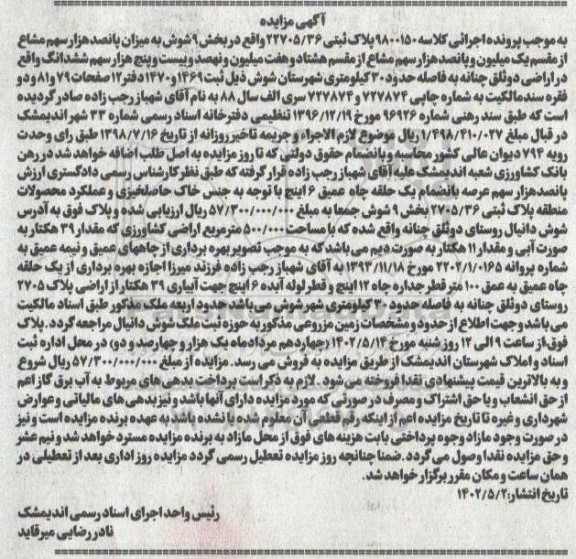 آگهی مزایده
به موجب پرونده اجرائی کلاسه ۹۸۰۰۱۵۰ پلاک ثبتی ۲۲۷۰۵/۳۶ واقع در بخش ۹ شوش به میزان پانصدهزار سهم مشاع
از مقسم یک میلیون و پانصدهزار سهم مشاع از مقسم هشتاد و هفت میلیون و نهصد و بیست و پنج هزار سهم ششدانگ واقع
در اراضی دوثلق چنانه به فاصله حدود ۳۰ کیلومتری شهرستان شوش ذیل ثبت ۱۴۶۹ و ۱۴۷۰ دفتر ۱۲ صفحات ۷۹ و ۸۱ و دو
فقره سند مالکیت به شماره چاپی ۷۲۷۸۷۴ و ۷۲۷۸۷۳ سری الف سال ۸۸ به نام آقای شهباز رجب زاده صادر گردیده
است که طبق سند رهنی شماره ۹۶۹۲۶ مورخ ۱۳۹۶/۱۲/۱۹ تنظیمی دفترخانه اسناد رسمی شماره ۳۳ شهر اندیمشک
در قبال مبلغ ۱/۴۹۸/۴۱۰/۰۲۷ ریال موضوع لازم الاجرا و جریمه تاخیر روزانه از تاریخ ۱۳۹۸/۷/۱۶ طبق رای وحدت
رویه ۷۹۴ دیوان عالی کشور محاسبه و بانضمام حقوق دولتی که تا روز مزایده به اصل طلب اضافه خواهد شد در رهن
بانک کشاورزی شعبه اندیمشک علیه آقای شهباز رجب زاده قرار گرفته که طبق نظر کارشناس رسمی دادگستری ارزش
پانصدهزار سهم عرصه بانضمام یک حلقه چاه عمیق ۶ اینچ با توجه به جنس خاک حاصلخیزی و عملکرد محصولات
منطقه پلاک ثبتی ۲۷۰۵/۳۶ بخش ۹ شوش جمعا به مبلغ ۵۷/۳۰۰/۰۰۰/۰۰۰ ریال ارزیابی شده و پلاک فوق به آدرس
شوش دانیال روستای دوثلق چنانه واقع شده که با مساحت ۵۰۰/۰۰۰ مترمربع اراضی کشاورزی که مقدار ۳۹ هکتار به
صورت آبی و مقدار ۱۱ هکتار به صورت دیم می باشد که به موجب تصویر بهره برداری از چاههای عمیق و نیمه عمیق به
شماره پروانه ۲۲۰۲/۱۰۱۶۵ مورخ ۱۳۹۳/۱۱/۱۸ به آقای شهباز رجب زاده فرزند میرزا اجازه بهره برداری از یک حلقه
چاه عمیق به عمق ۱۰۰ متر قطر جداره چاه ۱۲ اینچ و قطر لوله آبده ۶ اینچ جهت آبیاری ۳۹ هکتار از اراضی پلاک ۲۷۰۵
روستای دوثلق چنانه به فاصله حدود ۳۰ کیلومتری شهر شوش می باشد حدود اربعه ملک مذکور طبق اسناد مالکیت
می باشد وجهت اطلاع از حدود و مشخصات زمین مزروعی مذکور به حوزه ثبت ملک شوش دانیال مراجعه گردد. پلاک
فوق از ساعت ۹ الی ۱۲ روز شنبه مورخ ۱۴۰۲/۵/۱۴ (چهاردهم مردادماه یک هزار و چهارصد و دو) در محل اداره ثبت
اسناد و املاک شهرستان اندیمشک از طریق مزایده به فروش می رسد. مزایده از مبلغ ۵۷/۳۰۰/۰۰۰/۰۰۰ ریال شروع
و به بالاترین قیمت پیشنهادی نقدا فروخته می شود. لازم به ذکر است پرداخت بدهی های مربوط به آب برق گاز اعم
از حق انشعاب و یا حق اشتراک و مصرف در صورتی که مورد مزایده دارای آنها باشد و نیز بدهی های مالیاتی و عوارض
شهرداری و غیره تا تاریخ مزایده اعم از اینکه رقم قطعی آن معلوم شده یا نشده باشد به عهده برنده مزایده است و نیز
در صورت وجود مازاد وجوه پرداختی بابت هزینه های فوق از محل مازاد به برنده مزایده مسترد خواهد شد و نیم عشر
و حق مزایده نقدا وصول می گردد. ضمنا چنانچه روز مزایده تعطیل رسمی گردد مزایده روز اداری بعد از تعطیلی در
همان ساعت و مکان مقرر برگزار خواهد شد.
تاریخ انتشار: ۱۴۰۲/۵/۲
رئیس واحد اجرای اسناد رسمی اندیمشک
نادر رضایی میرقاید